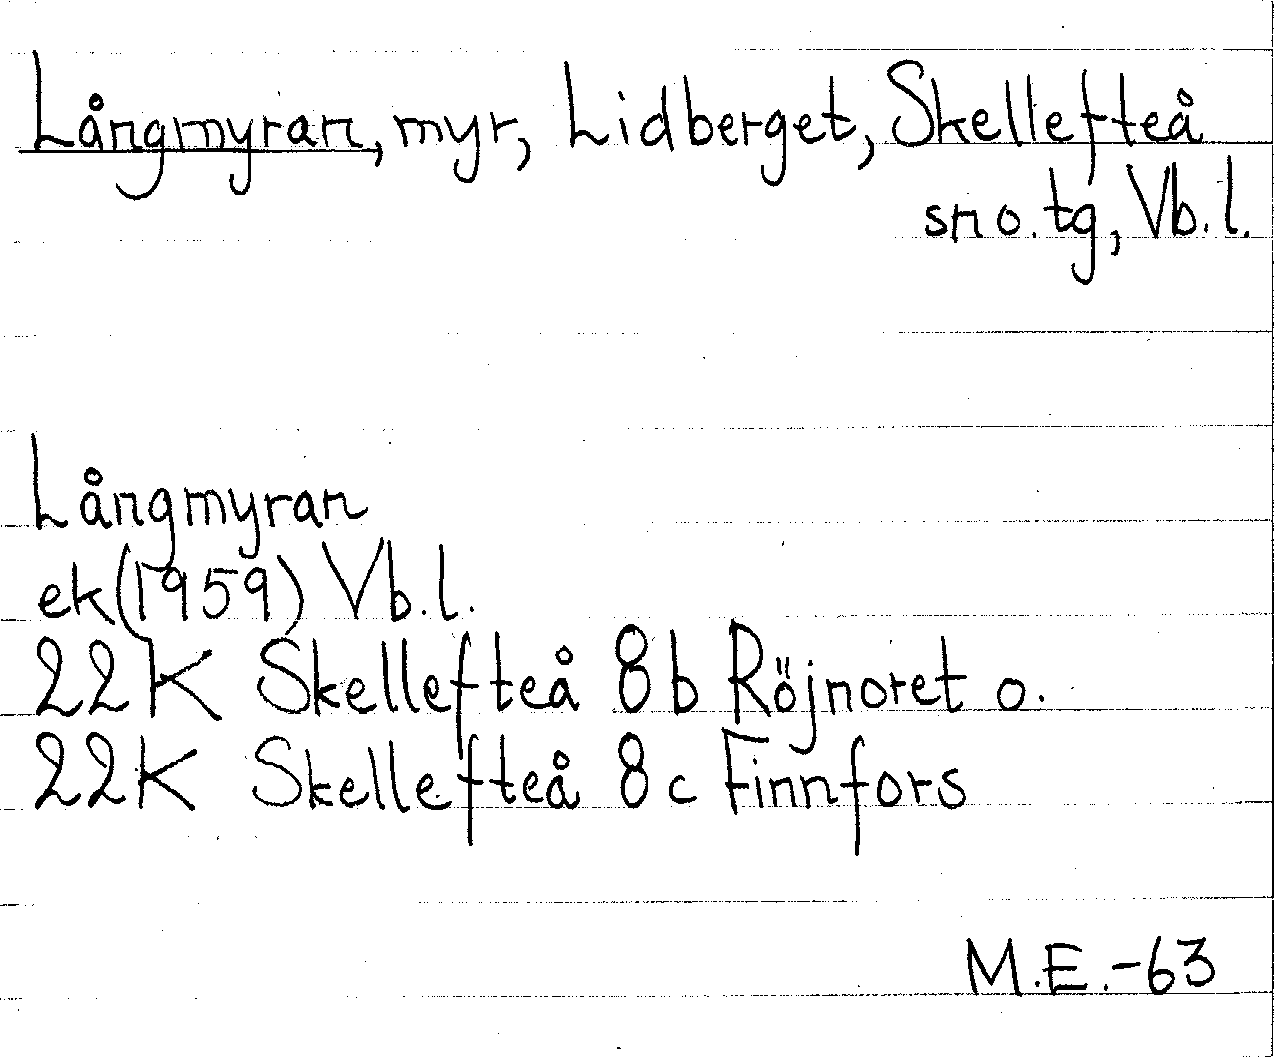 Långmyran, myr, Lidberget, Skellefteå
sn o. tg, Vb. l.
Långmyran
ek (1959) Vb. l.
22K Skellefteå 8 b Röjnoret o.
22K Skellefteå 8 c Finnfors
M.E.-63